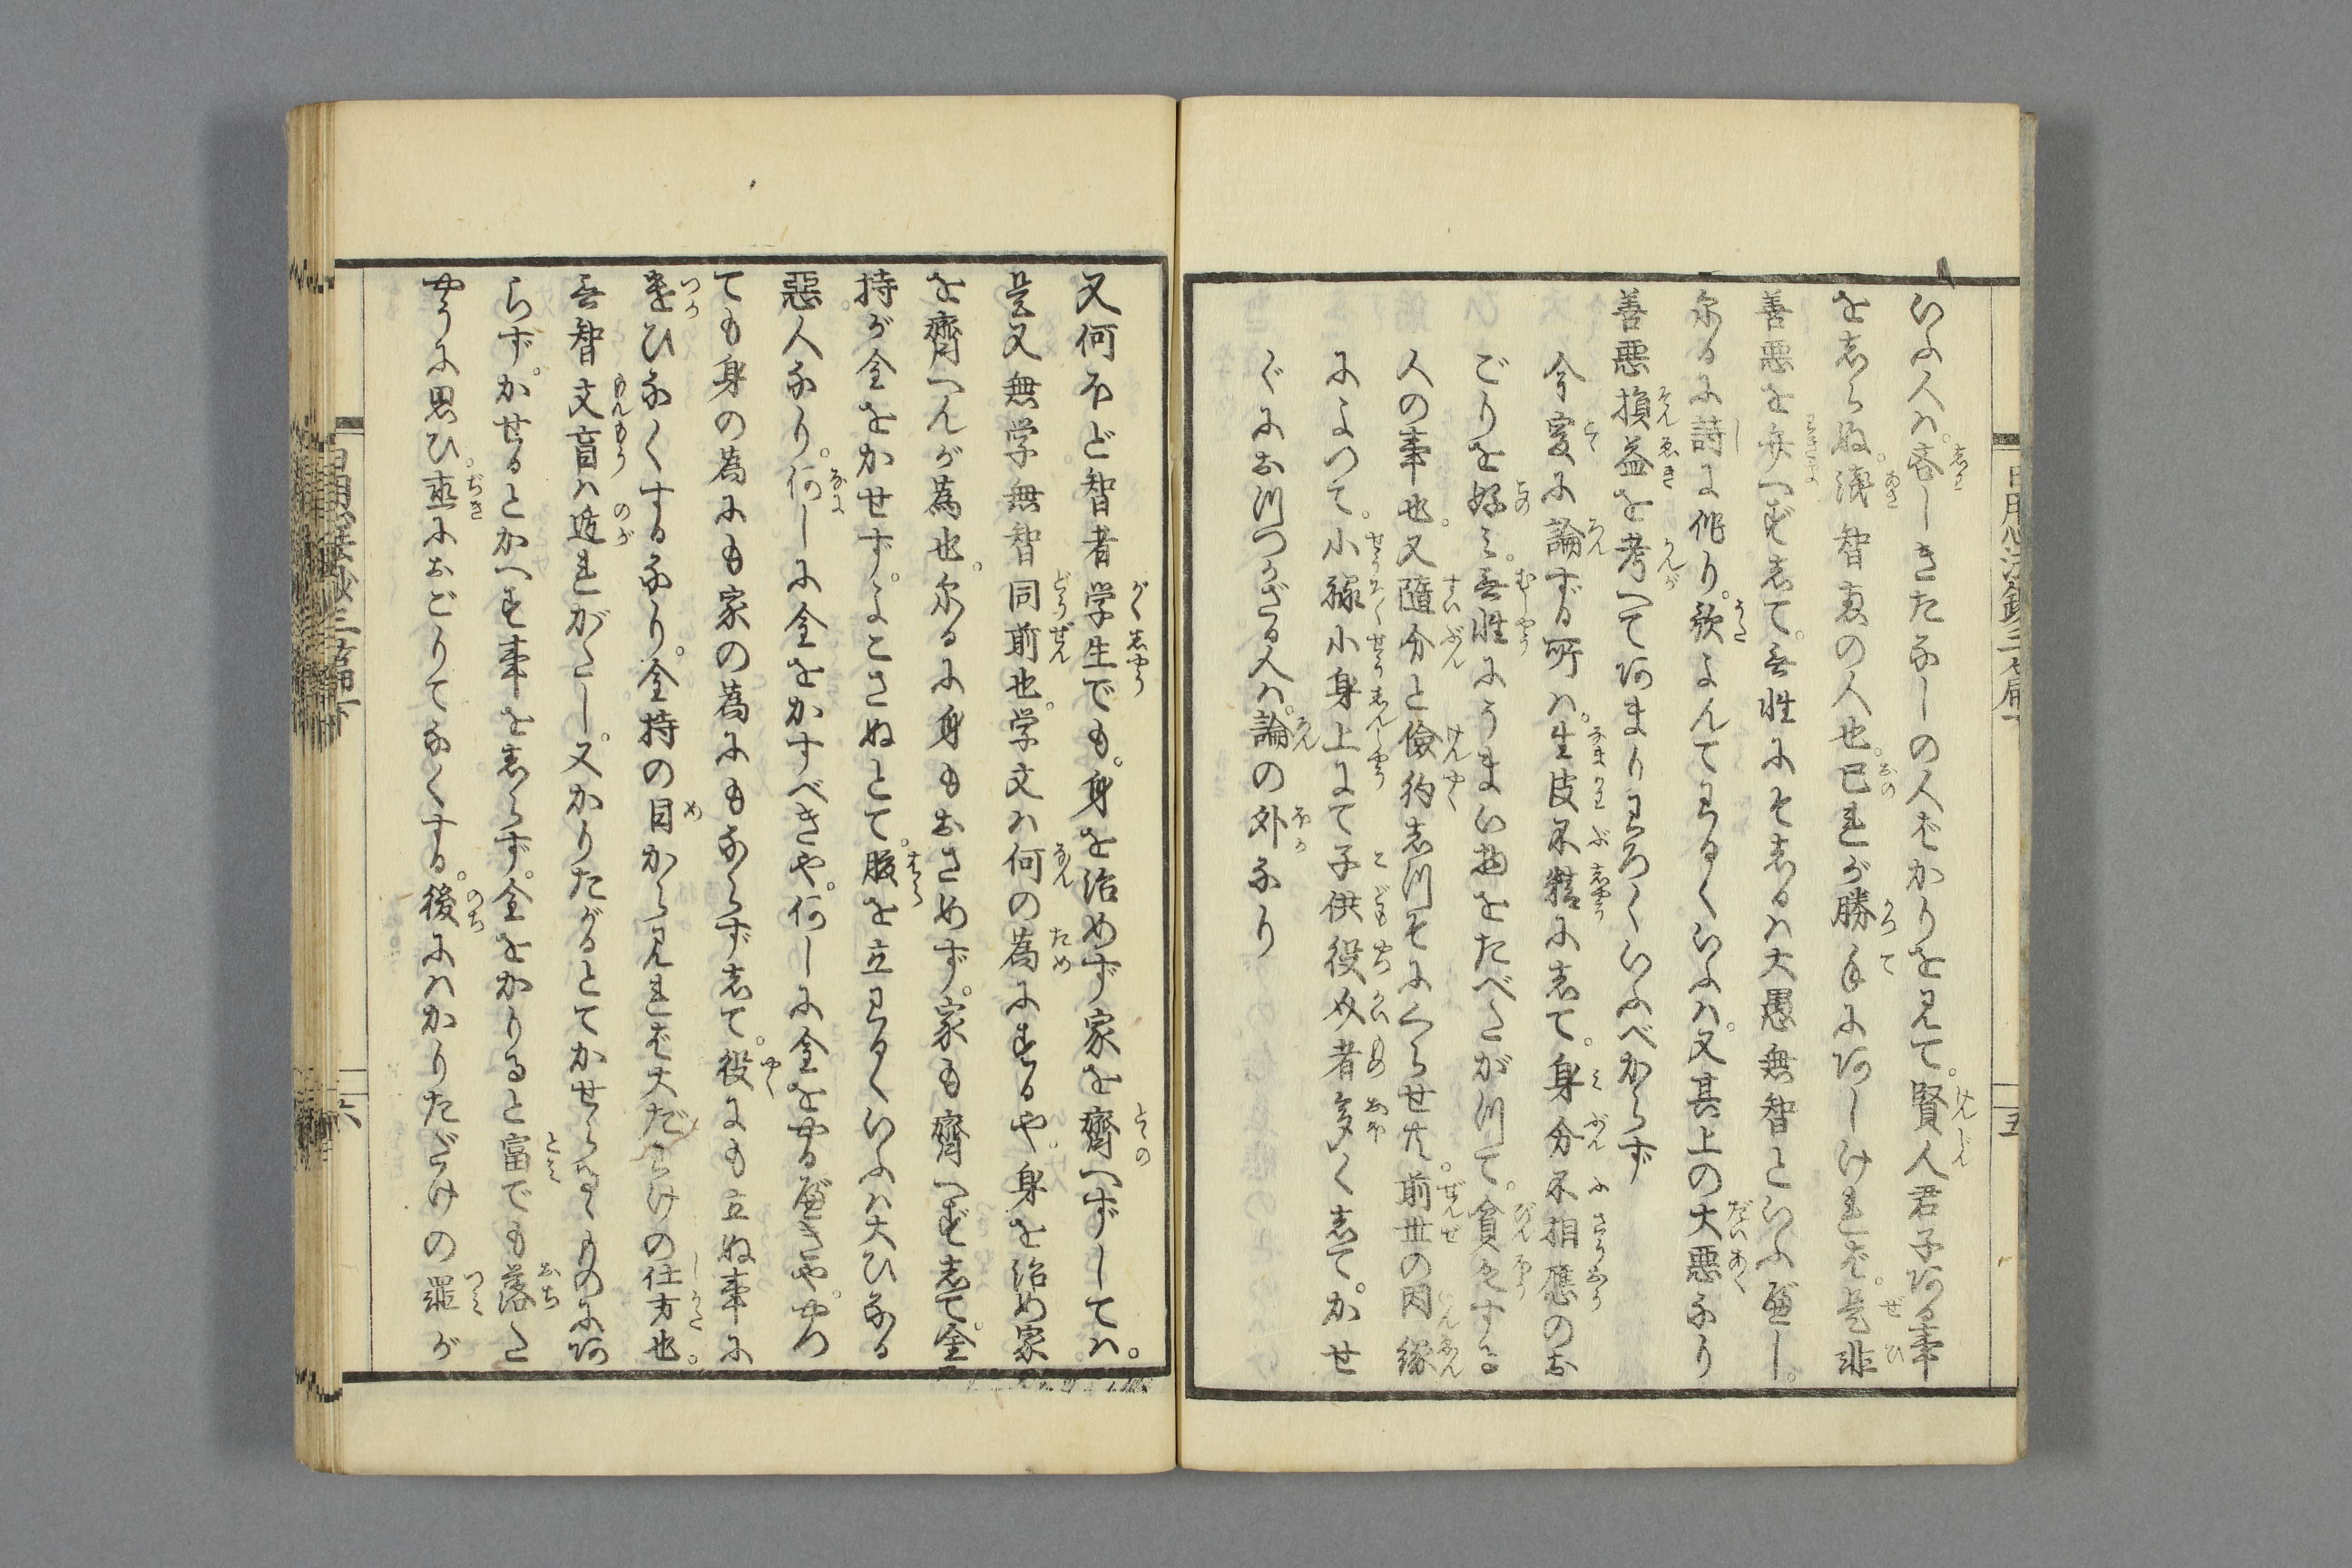 いふ人ハ。吝しきたなしの人ばかりを見て。賢人君子ある事
を志らぬ。浅智恵の人也。己れが勝手にあしけれバ。是非
善悪を弁へず志て。無性にそ志るハ大愚無智といふべし。
尓るに詩に作り。歌よんてわるくいふハ。又甚上の大悪なり
善悪損益を考へてあまりわろくいふべからず
今爰に論ずる所ハ。生皮不精に志て。身分不相應のお
ごりを好ミ。無性にうまい物をたべたがつて。貧乏する
人の事也。又随分と儉約志つゝ
前世の因縁
によつて。小禄小身上にて子供役介者多く志て。かせ
ぐにおつつかざる人ハ。論の外なり
又何ほど智者学生でも。身を治めず家を齊へずしてハ。
是又無学無智同前也。学文ハ何の為にするや。身を治め家
を齊へんが為也。尓るに身もおさめず。家も齊へず志て。金
持が金をかせず。よこさぬとて。腹を立わるくいふハ大ひなる
惡人なり。何しに金をかすべきや。何しに金をやるべきや。やつ
ても身の為にも家の為にもならず志て。役にも立ぬ事に
遣ひなくするなり。金持の目から見れバ大だらけの仕方也。
無智文盲ハ遁れがたし。又かりたがるとてかせらるゝものにあ
らず。かせるとかへす事を志らず。金をかりると富でも落た
やうに思ひ。直におごりてなくする。後にハかりたどけの罪が
五
六